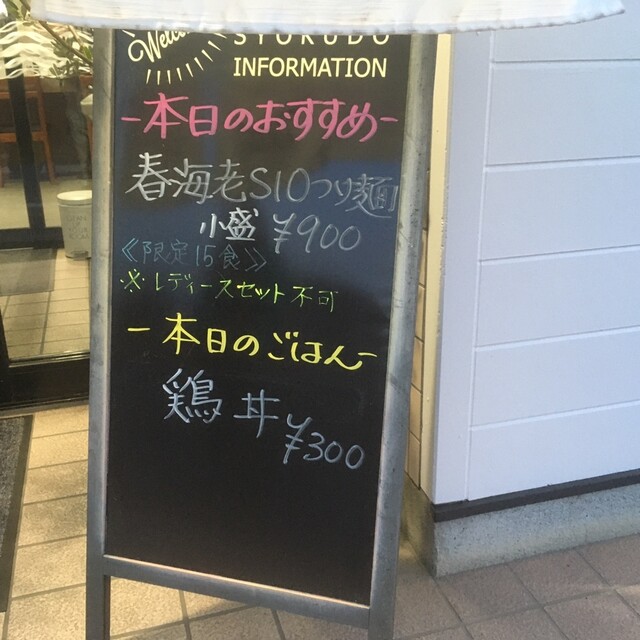 Welcome
SYOKUDO
INFORMATION
-本日のおすすめ-
春海老SIOつけ麺
小盛 ¥900
《限定15食》
※レディースセット不可
-本日のごはん-
鶏丼
¥300